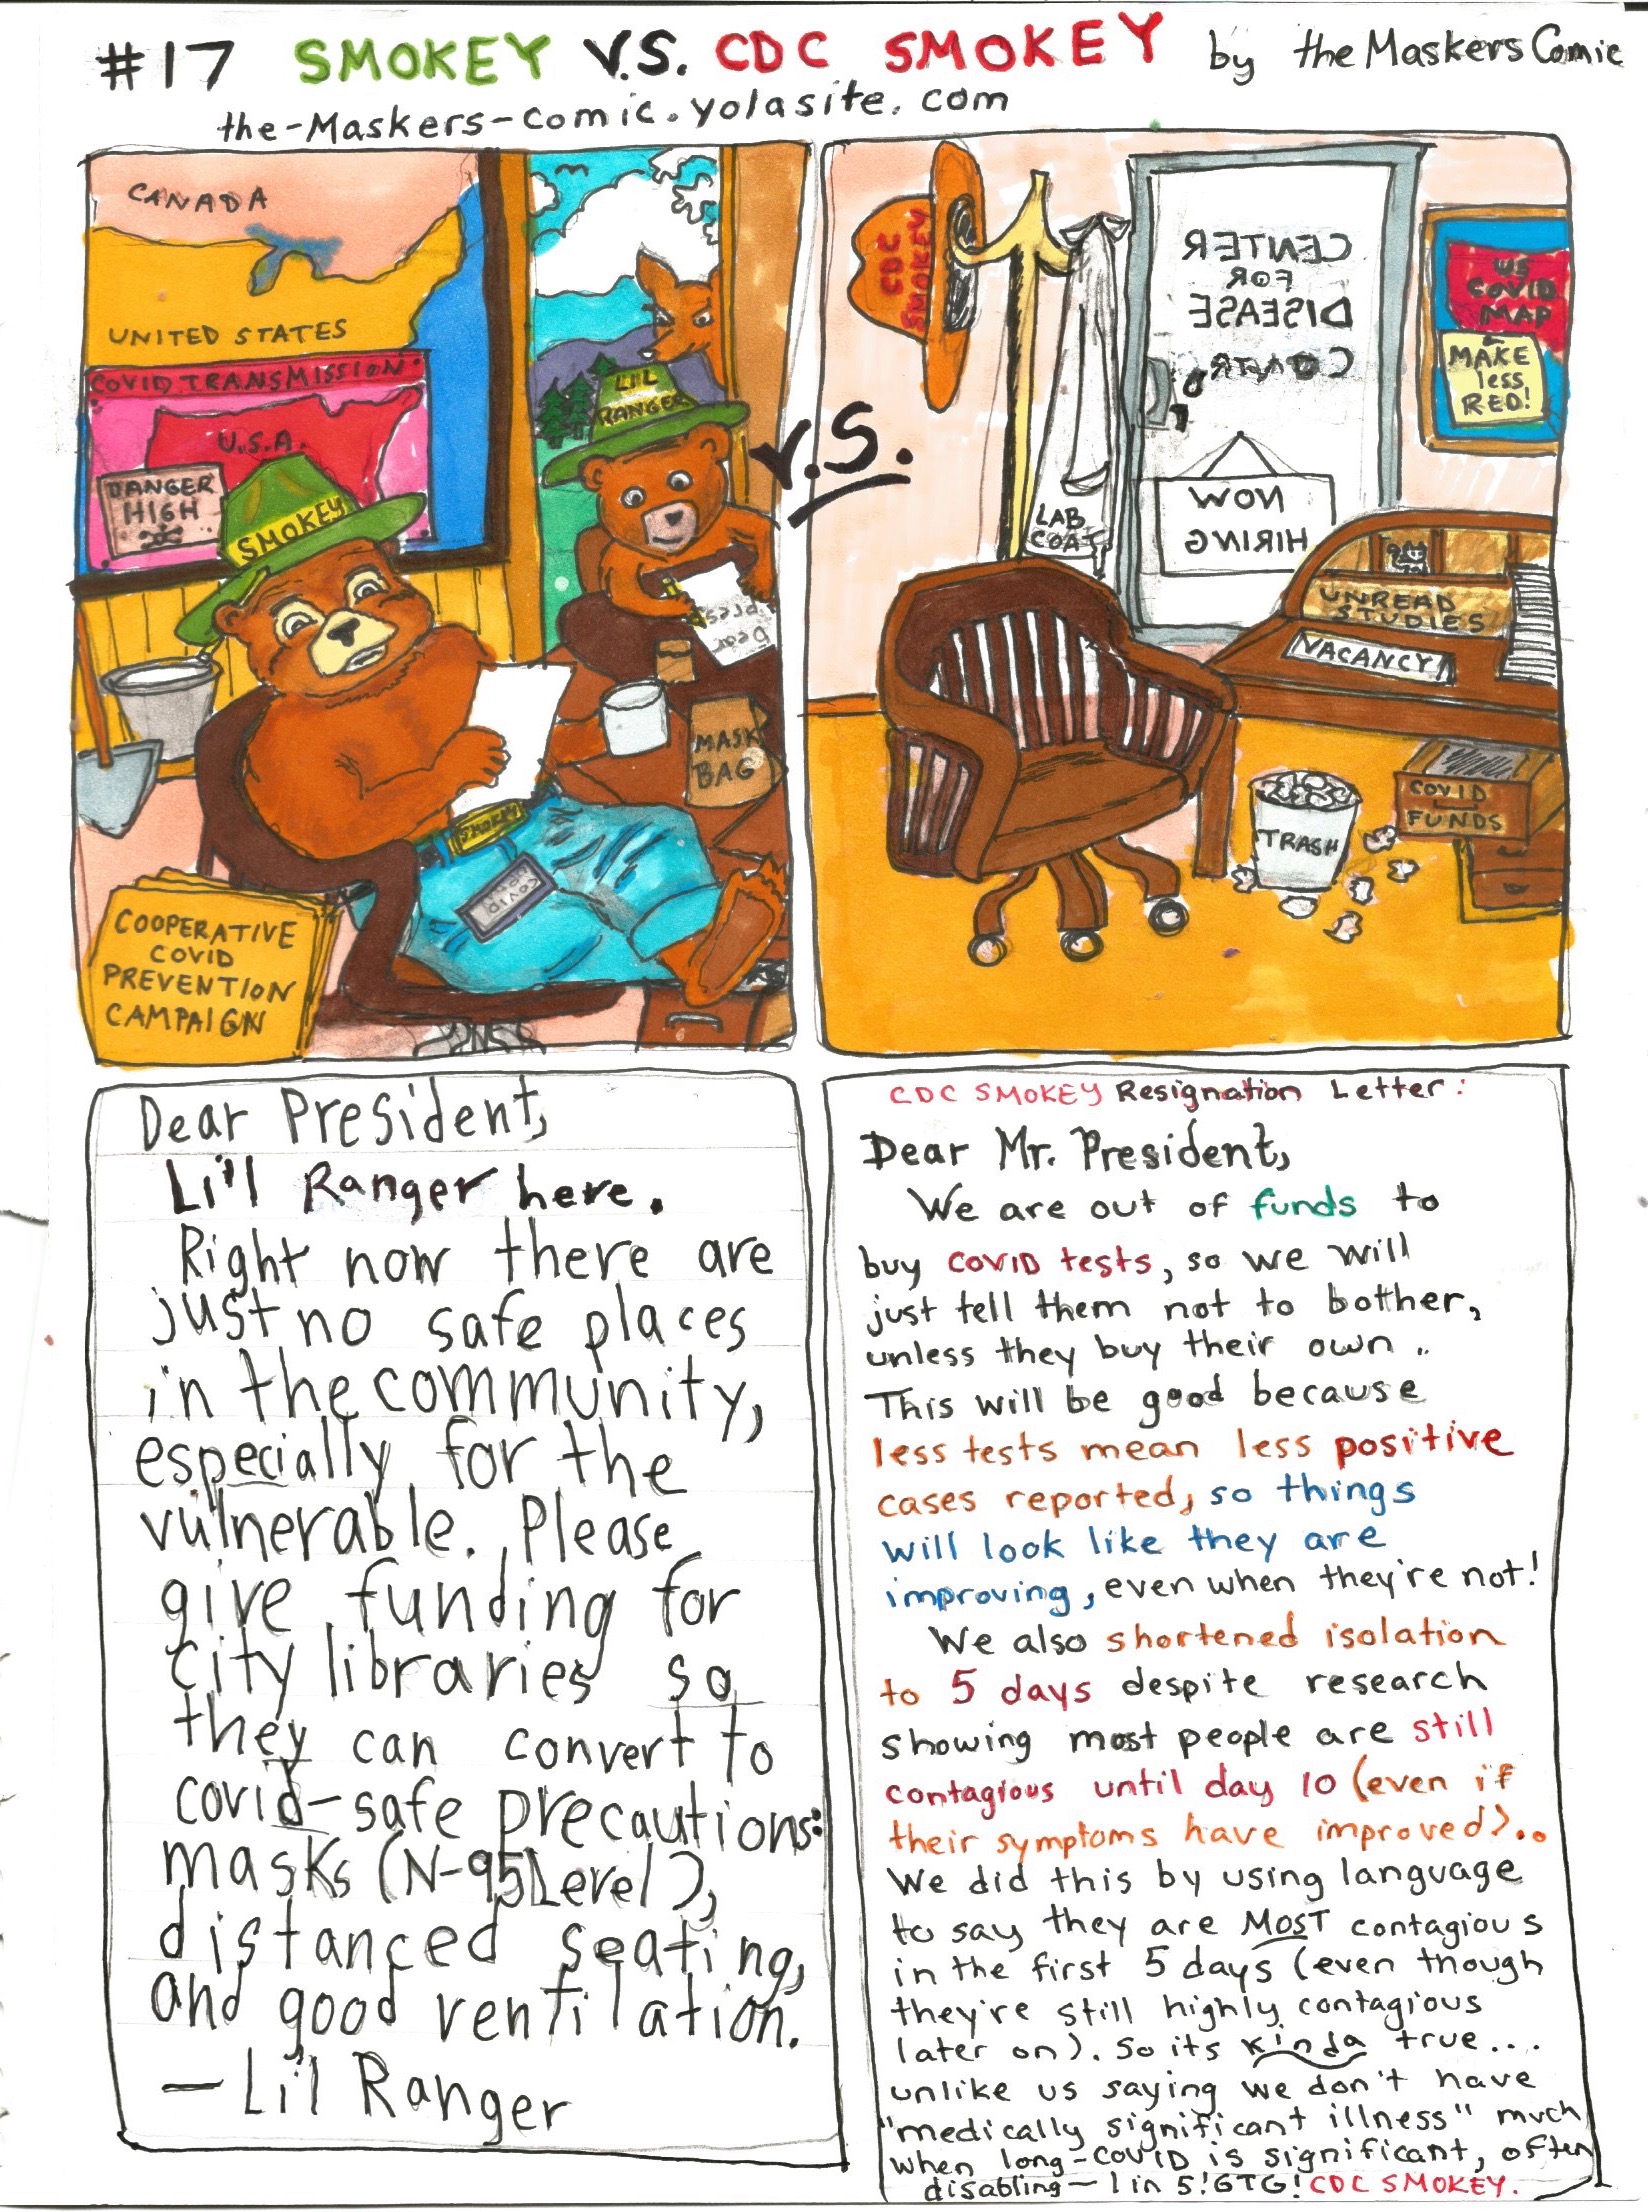 #17 SMOKEY V.S. CDC SMOKEY by the Maskers Comic
the-Maskers-comic.yolasite.com
CANADA
UNITED STATES
COVID TRANSMISSION
U.S.A.
DANGER
HIGH
SMOKEY
LIL
RANGER
Dear
Pres
MASK
BAG
SMOKEY
COVID
COOPERATIVE
COVID
PREVENTION
CAMPAIGN
V.S.
CDC
SMOKEY
LAB
COAT
CENTER
FOR
DISEASE
NOW
HIRING
US
COVID
MAP
MAKE
less
RED!
UNREAD
STUDIES
VACANCY
TRASH
COVID
FUNDS
Dear President,
Li'l Ranger here.
Right now there are
just no safe places
in the community,
especially for the
vulnerable. Please
give funding for
city libraries so
they can convert to
covid-safe precautions:
masks (N-95 Level),
distanced seating,
and good ventilation.
— Li'l Ranger
CDC SMOKEY Resignation Letter:
Dear Mr. President,
We are out of funds to
buy COVID tests, so we will
just tell them not to bother,
unless they buy their own ..
This will be good because
less tests mean less positive
cases reported, so things
will look like they are
improving, even when they're not!
We also shortened isolation
to 5 days despite research
showing most people are still
contagious until day 10 (even if
their symptoms have improved)..
We did this by using language
to say they are MOST contagious
in the first 5 days (even though
they're still highly contagious
later on). So its kinda true....
unlike us saying we don't have
"medically significant illness" much
when long-COVID is significant, often
disabling — 1 in 5! GTG! CDC SMOKEY.